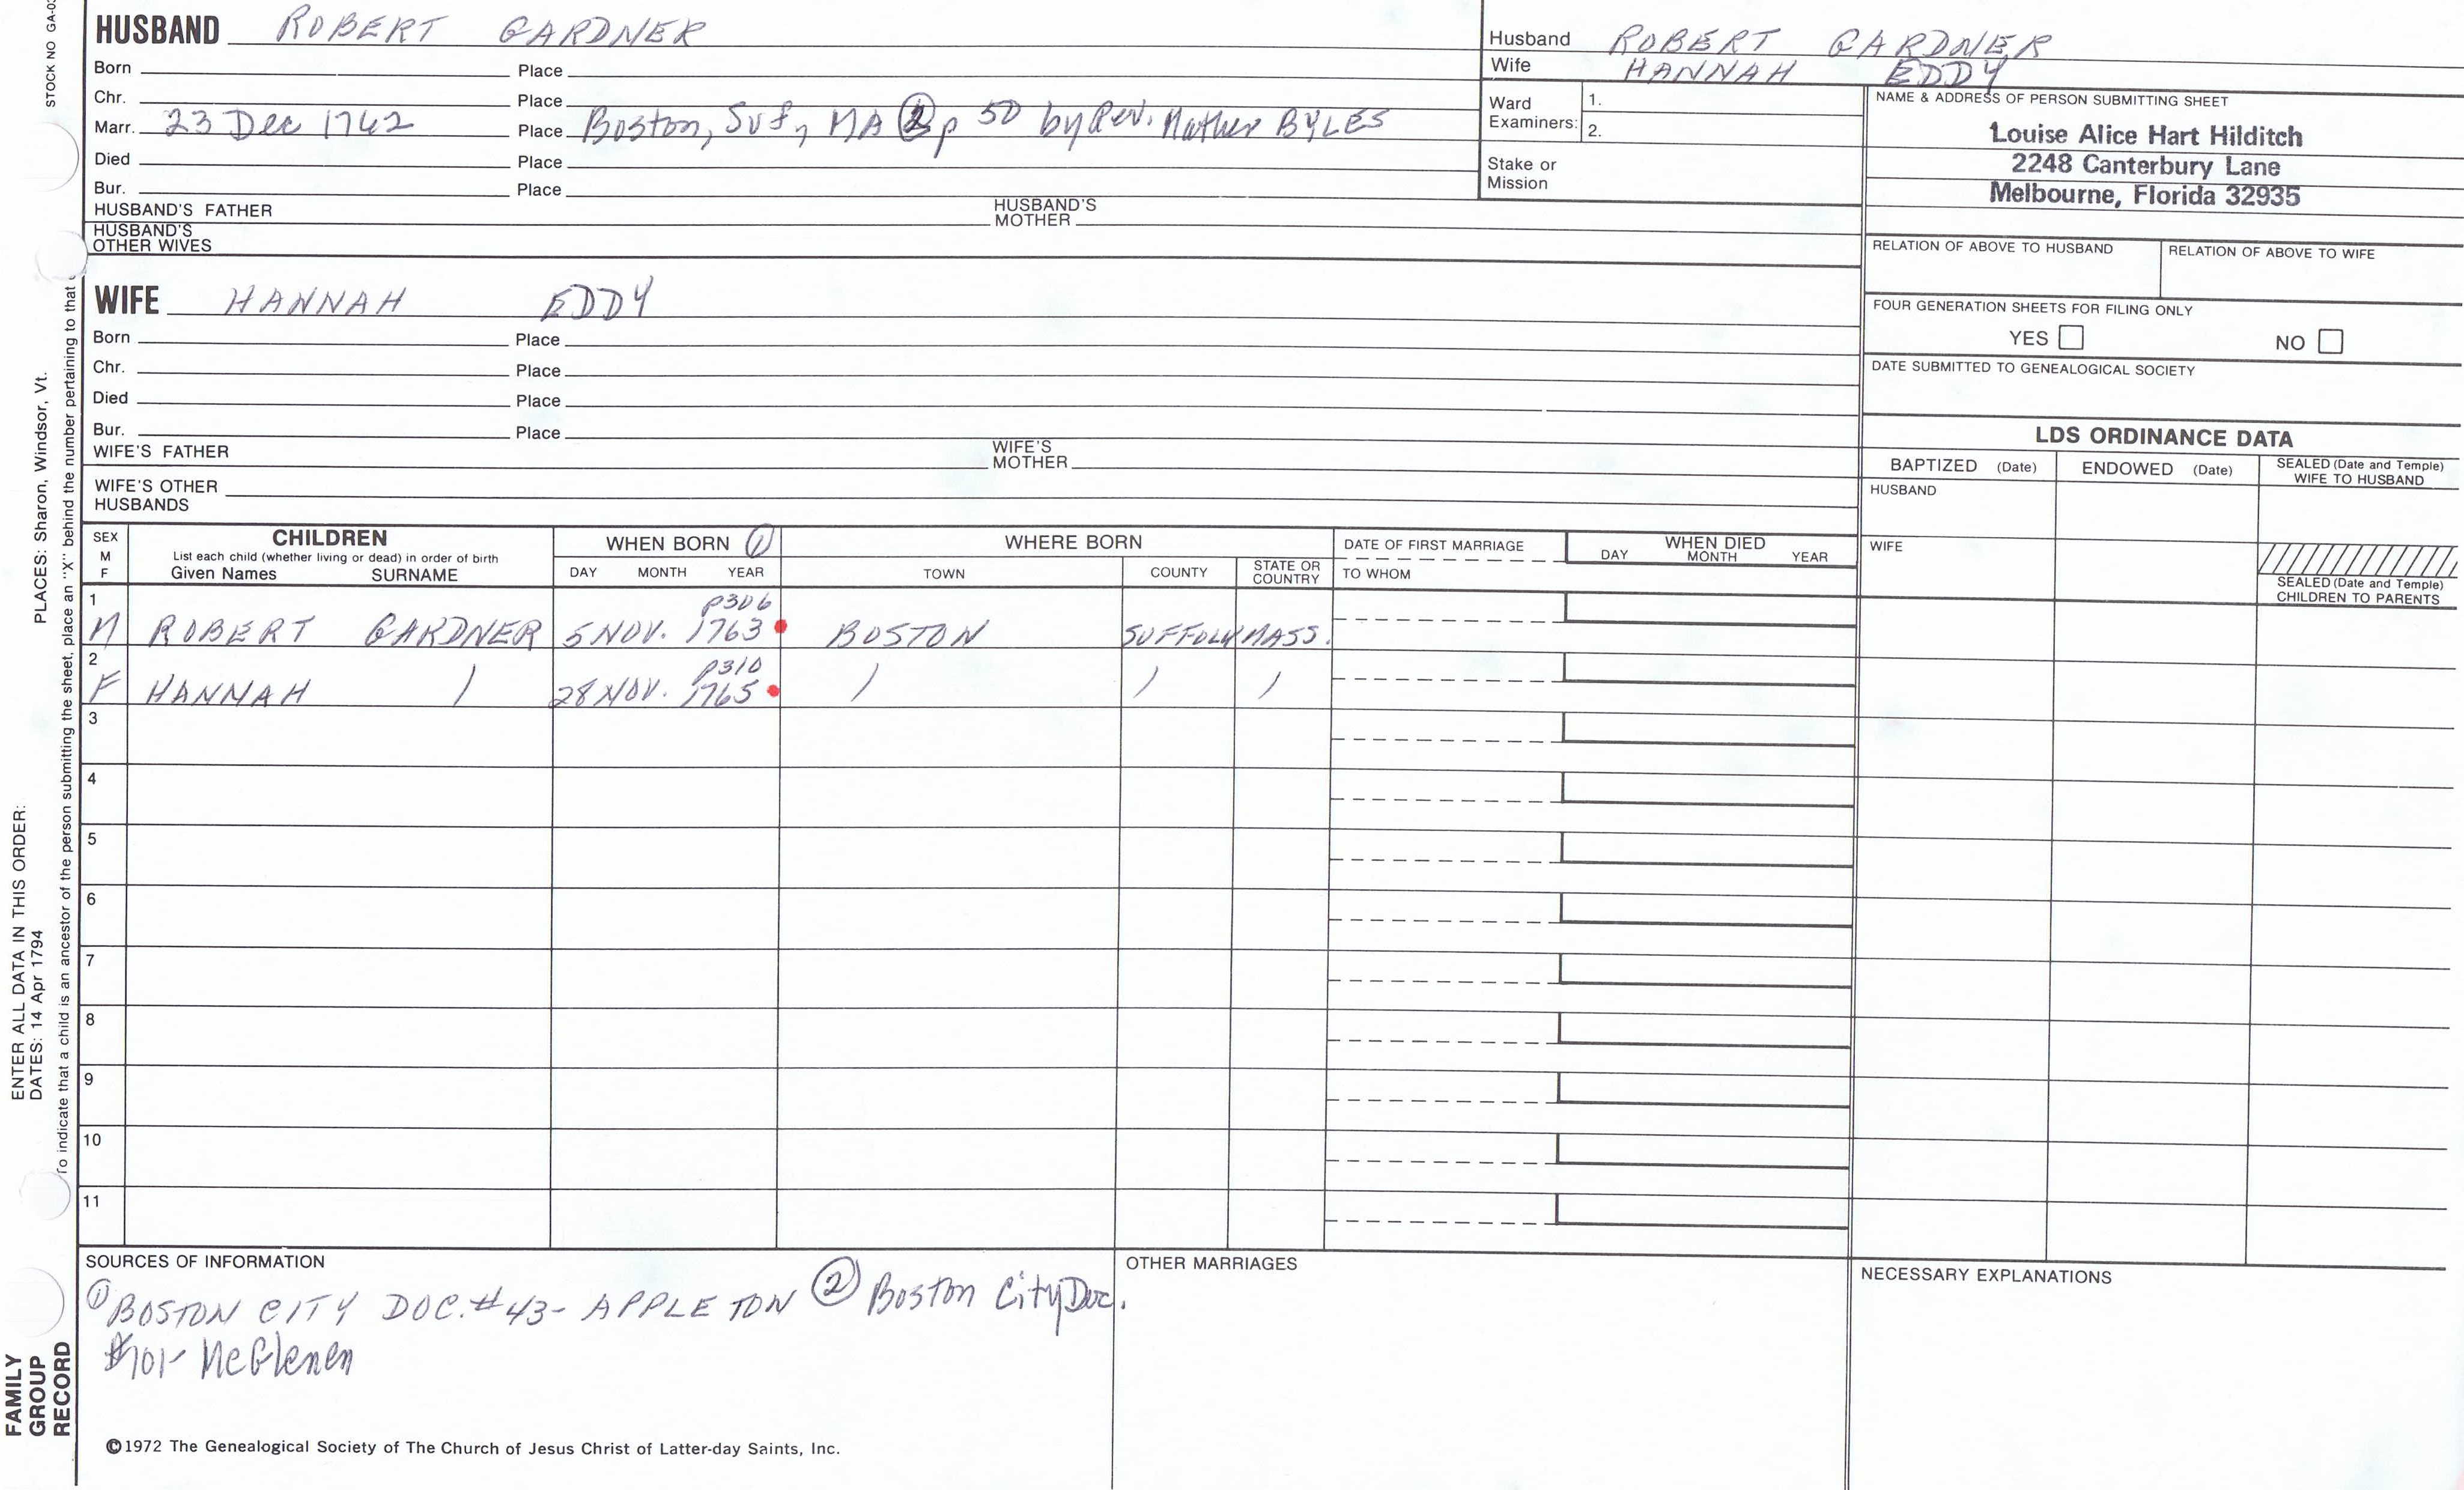 STOCK NO GA-0
HUSBAND ROBERT GARDNER
Born Place
Chr. Place
Marr. 23 Dec 1762 Place Boston, Suf, MA ② p 50 by Rev. Mather BYLES
Died Place
Bur. Place
HUSBAND'S FATHER HUSBAND'S MOTHER
HUSBAND'S OTHER WIVES
Husband ROBERT GARDNER
Wife HANNAH EDDY
Ward Examiners: 1.
2.
Stake or Mission
NAME & ADDRESS OF PERSON SUBMITTING SHEET
Louise Alice Hart Hilditch
2248 Canterbury Lane
Melbourne, Florida 32935
RELATION OF ABOVE TO HUSBAND RELATION OF ABOVE TO WIFE
FOUR GENERATION SHEETS FOR FILING ONLY
YES NO
DATE SUBMITTED TO GENEALOGICAL SOCIETY
WIFE HANNAH EDDY
Born Place
Chr. Place
Died Place
Bur. Place
WIFE'S FATHER WIFE'S MOTHER
WIFE'S OTHER HUSBANDS
LDS ORDINANCE DATA
BAPTIZED (Date) ENDOWED (Date) SEALED (Date and Temple) WIFE TO HUSBAND
HUSBAND
WIFE
SEALED (Date and Temple) CHILDREN TO PARENTS
SEX M F
CHILDREN
List each child (whether living or dead) in order of birth
Given Names SURNAME
WHEN BORN ①
DAY MONTH YEAR
WHERE BORN
TOWN COUNTY STATE OR COUNTRY
DATE OF FIRST MARRIAGE
TO WHOM
WHEN DIED
DAY MONTH YEAR
1 p306
M ROBERT GARDNER 5 NOV. 1763 BOSTON SUFFOLK MASS.
2 p310
F HANNAH / 28 NOV. 1765 / / /
3
4
5
6
7
8
9
10
11
SOURCES OF INFORMATION
① BOSTON CITY DOC. #43- APPLETON ② Boston City Doc.
#101- McGlenen
OTHER MARRIAGES
NECESSARY EXPLANATIONS
©1972 The Genealogical Society of The Church of Jesus Christ of Latter-day Saints, Inc.
FAMILY GROUP RECORD
ENTER ALL DATA IN THIS ORDER:
DATES: 14 Apr 1794 PLACES: Sharon, Windsor, Vt.
To indicate that a child is an ancestor of the person submitting the sheet, place an "X" behind the number pertaining to that